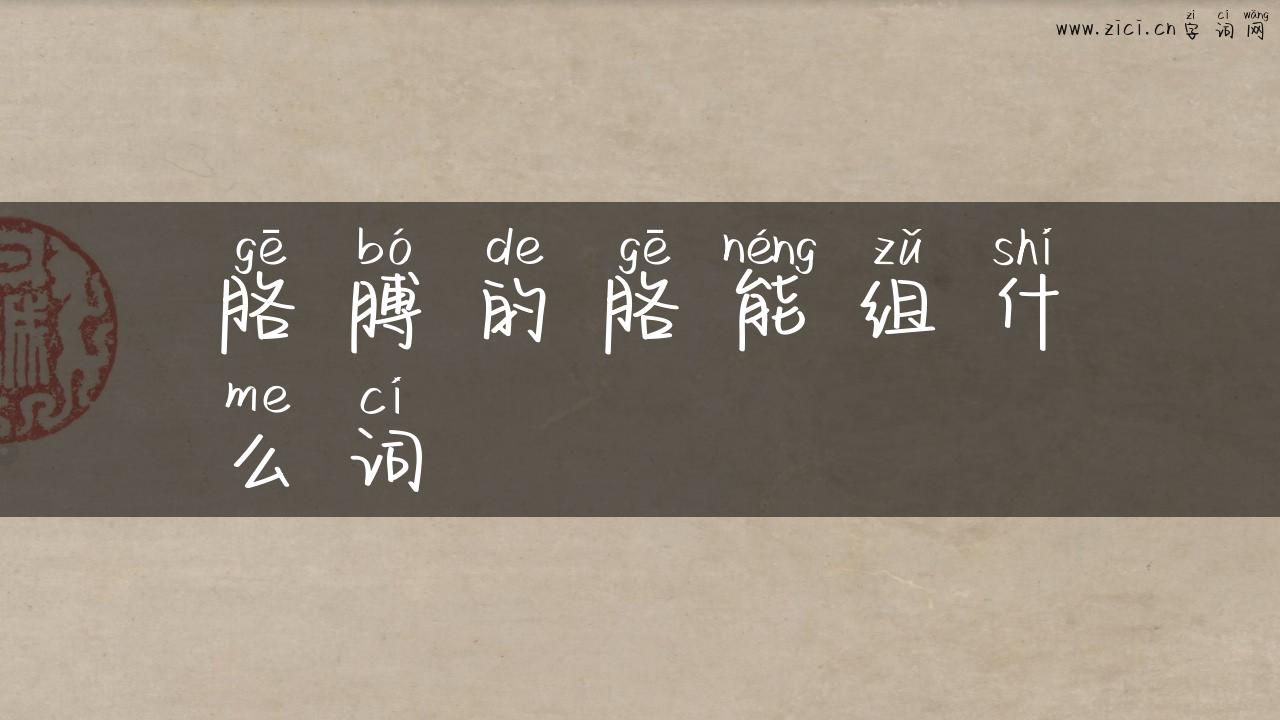 zì cí wǎng
www.zici.cn 字 词 网
gē bó de gē néng zǔ shí
胳 膊 的 胳 能 组 什
me cí
么 词